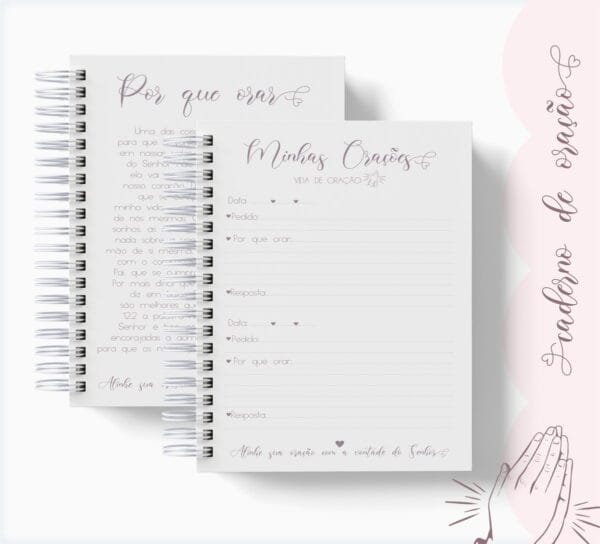 Por que orar
Uma das cois
para que
em nossas
do Senhor
ela vai
nosso coração. D
que se
minha vida
de nós mesmas.
sonhos, as
nada sobre
mão de si mesma,
com o com
Pai que se cump
Por mais difícil que
diz em
são melhores qu
12.2 a palavra
Senhor é
encorajadas a
para que os n
Alinhe sua
Minhas Orações
VIDA DE ORAÇÃO
Data:
Pedido:
Por que orar:
Resposta:
Data:
Pedido:
Por que orar:
Resposta:
Alinhe sua oração com a vontade do Senhor
caderno de oração